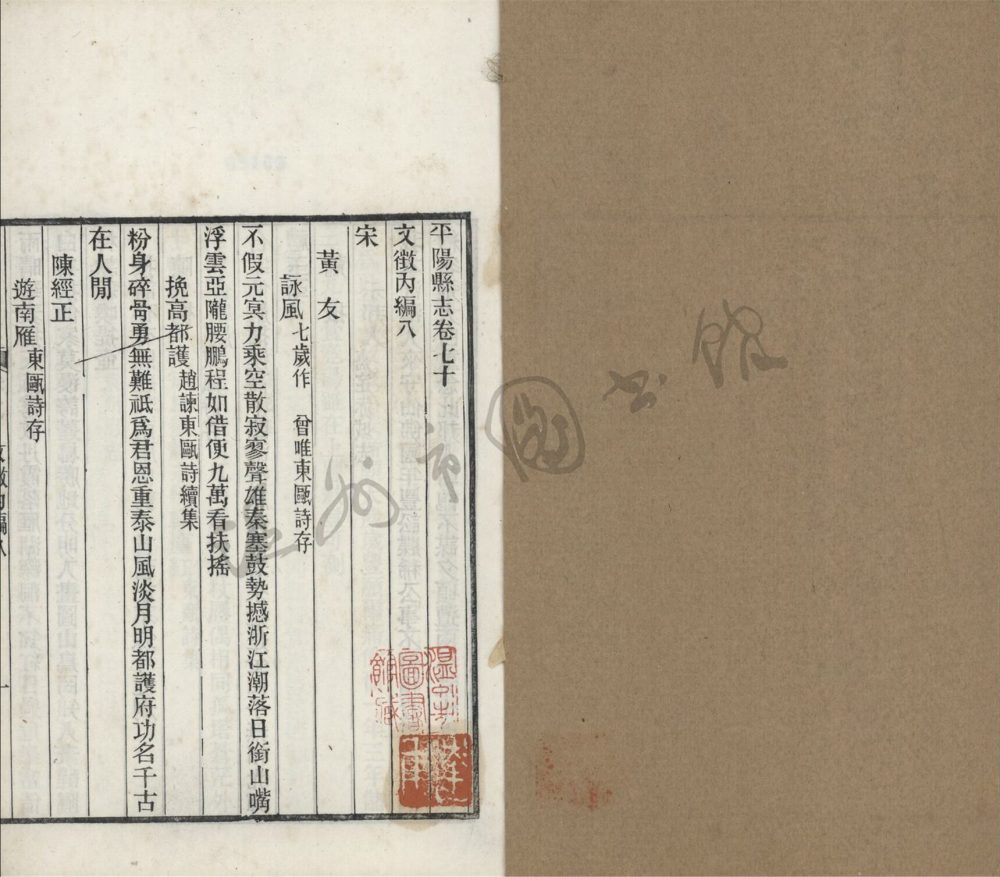 平陽縣志卷七十
文徵內編八
宋
黃友
詠風七歲作 曾唯東甌詩存
不假元冥力乘空散寂寥聲雄秦塞鼓勢撼浙江潮落日銜山嘴
浮雲亞隴腰鵬程如借便九萬看扶搖
挽高都護趙諫東甌詩續集
粉身碎骨勇無難祇爲君恩重泰山風淡月明都護府功名千古
在人閒
陳經正
遊南雁東甌詩存
一
溫州市圖書館
溫州市
圖書
館藏